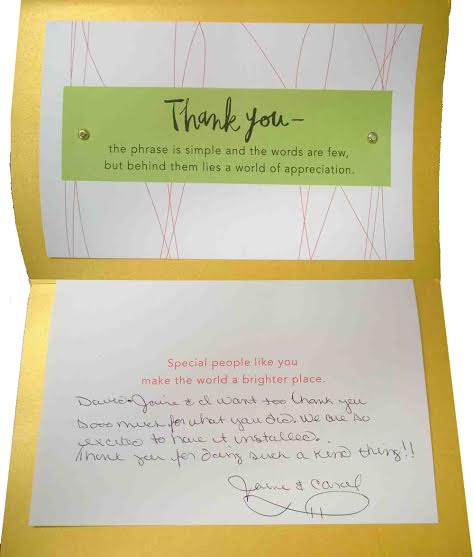 Thank you–
the phrase is simple and the words are few,
but behind them lies a world of appreciation.
Special people like you
make the world a brighter place.
Jaine & I want too thank you
sooo much for what you did. We are so
excited to have it installed.
Thank you for doing such a kind thing!!
Jaine & Carol